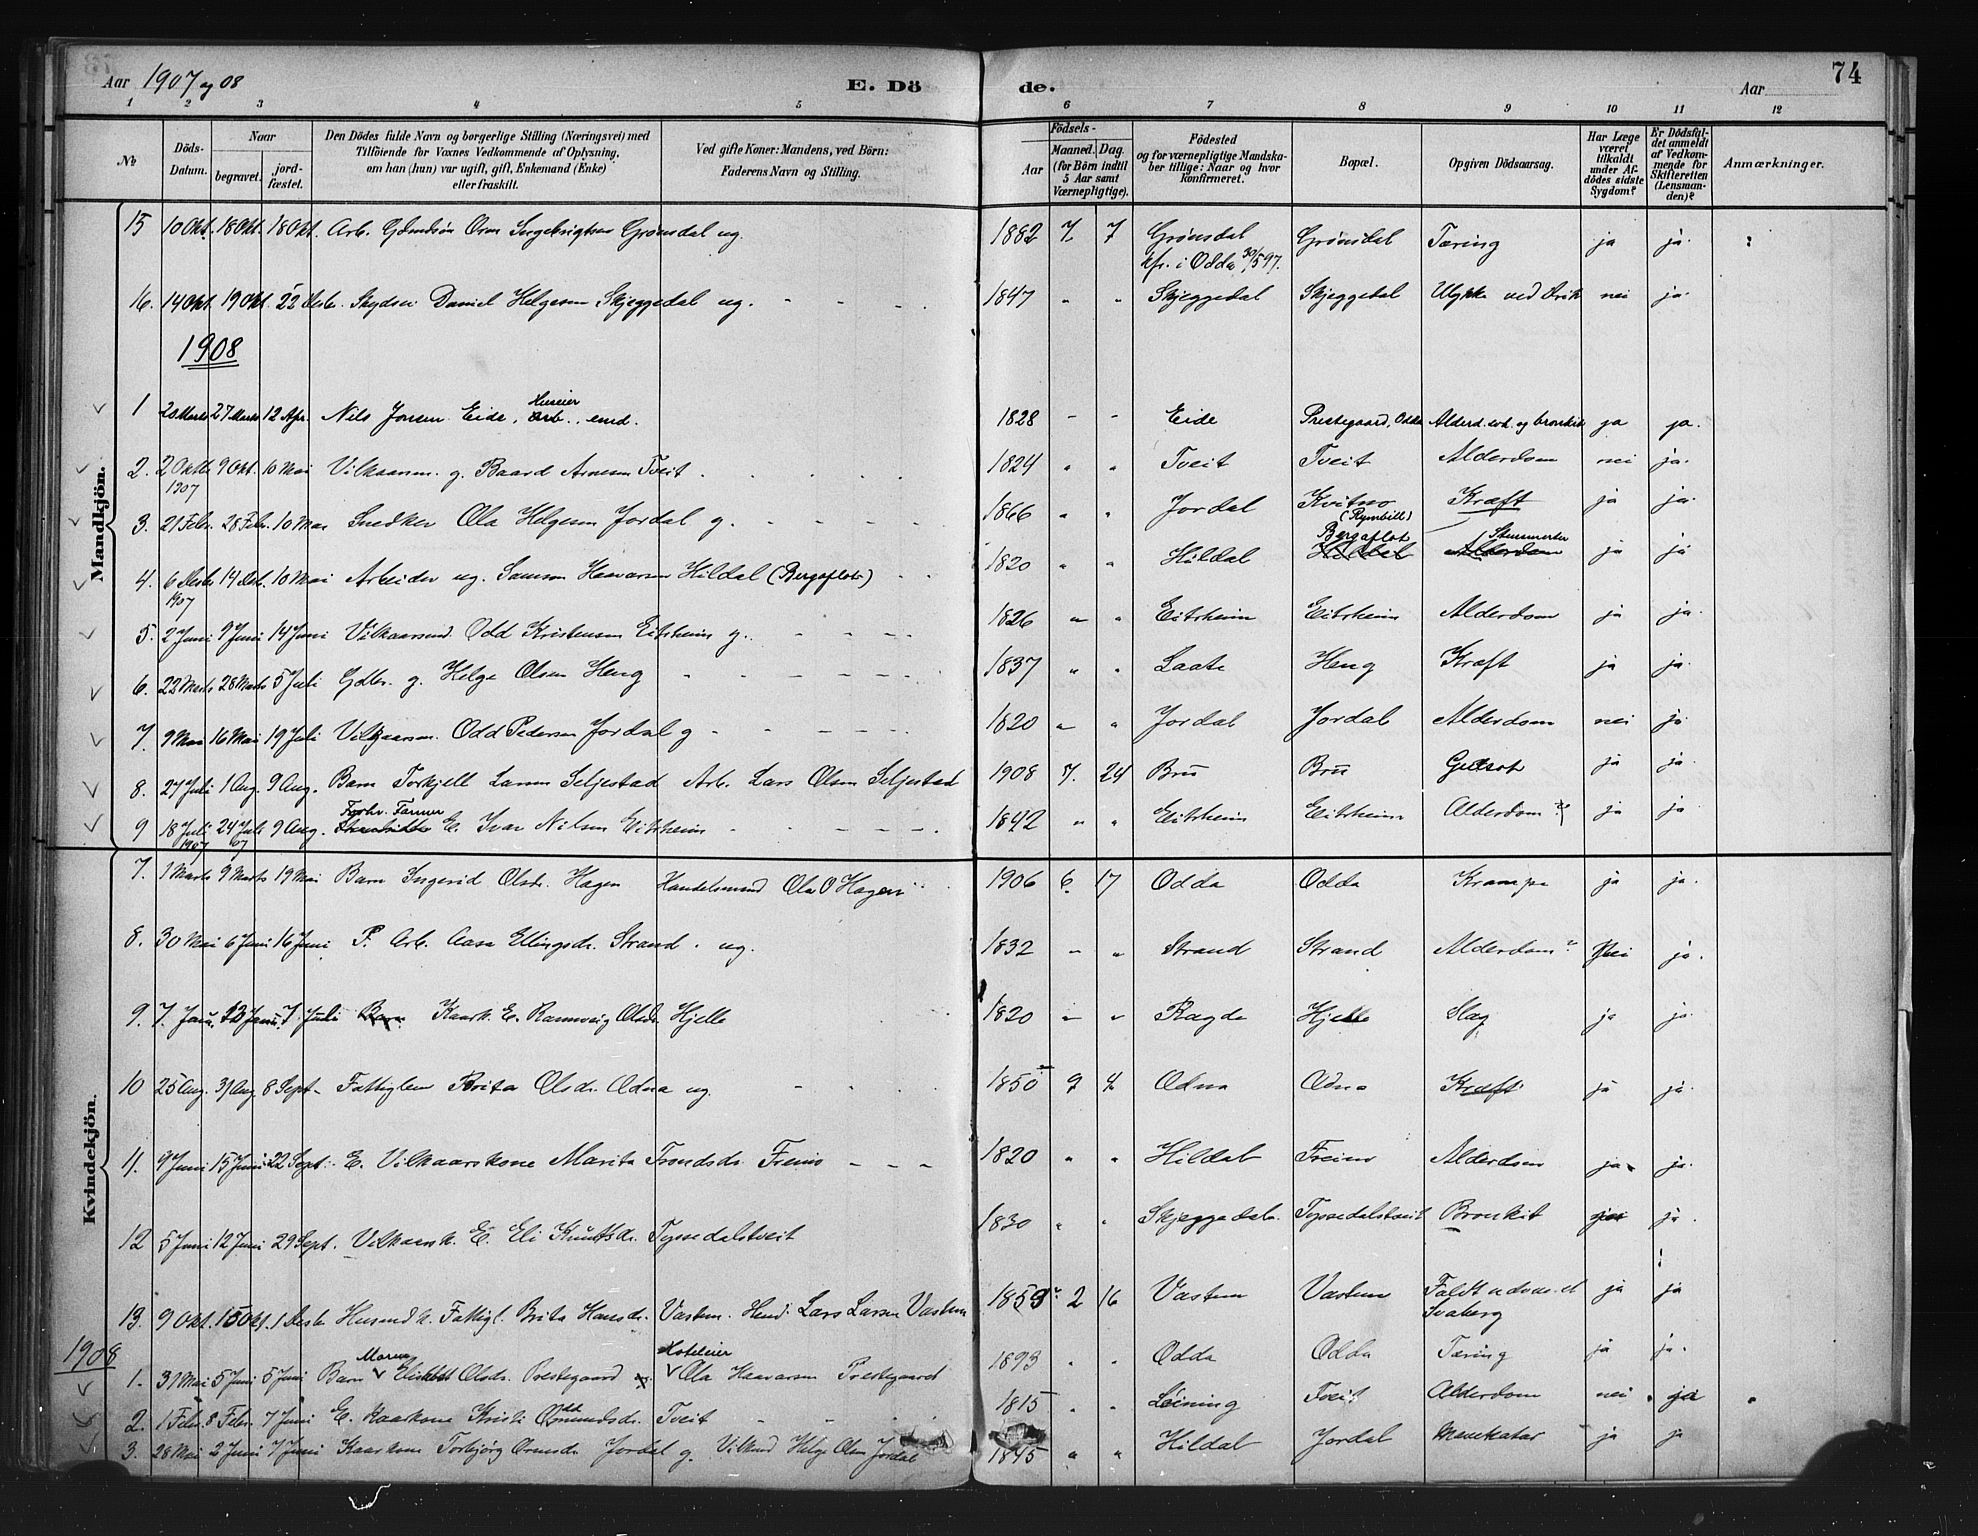 Aar 1907 og 08 E. Dö de. Aar 74
1 2 3 4 5 6 7 8 9 10 11 12
№
Döds-Datum.
Naar
begravet.
jord-fæstet.
Den Dödes fulde Navn og borgerlige Stilling (Næringsvei) med
Tilföiende for Voxnes Vedkommende af Oplysning,
om han (hun) var ugift, gift, Enkemand (Enke)
eller fraskilt.
Ved gifte Koner: Mandens, ved Börn:
Faderens Navn og Stilling.
Födsels-
Aar
Maaned. Dag.
(for Börn indtil
5 Aar samt
Værnepligtige).
Födested
og for værnepligtige Mandska-
ber tillige: Naar og hvor
konfirmeret.
Bopæl.
Opgiven Dödsaarsag.
Har Læge
været
tilkaldt
under Af-
dödes sidste
Sygdom?
Er Dödsfal-
det anmeldt
af Vedkom-
mende for
Skifteretten
(Lensman-
den)?
Anmærkninger.
Mandkjön.
15 10 Okt. 18 Okt. 18 Okt. Arb. Orm Ingebrigtsen Grønsdal ug. 1882 7 Grønsdal Grønsdal Tæring ja ja.
kfr. i Odda 30/5 97.
16. 14 Okt. 19 Okt. 22 Desb. Daniel Helgesen Skjeggedal ug. 1847 " " Skjeggedal Skjeggedal Ulykke ved nei ja.
1908
Huseier
1 20 Marts 27 Marts 12 Apr. Nils Jonsen Eide, Arb., emd. 1828 - - Eide Prestegaard, Odda Alderd. og bronkit ja ja.
2. 2 Oktb 9 Okt. 10 Mai Vilkaarsm. g. Baard Arnesen Tveit 1824 " " Tveit Tveit Alderdom nei ja.
1907
3. 21 Febr. 28 Feb. 10 Mai Snedker Ola Helgesen Jordal g. 1866 " " Jordal Kvitno Kræft ja ja.
Bergaflot
4. 6 Desbr 14 Des. 10 Mai Arbeider ug. Samson Haavarsen Hildal (Bergaflot) 1820 " " Hildal Hildal Alderdom ja ja
1907
5. 2 Juni 9 Juni 14 Juni Vilkaarsmd. Odd Kristensen Eitrheim g. 1826 " " Eitrheim Eitrheim Alderdom ja ja.
6. 22 Marts 28 Marts 5 Juli Gdbr. g. Helge Olsen Heng 1837 " " Laate Heng Kræft ja ja.
7. 9 Mai 16 Mai 19 Juli Vilkaarsm. Odd Pedersen Jordal g 1820 " " Jordal Jordal Alderdom nei ja.
8. 27 Juli 1 Aug. 9 Aug. Barn Torkjell Larsen Seljestad Arb. Lars Olsen Seljestad 1908 7. 24 Bru Bru Gulsot ja ja.
Forhv. Farmer
9 18 Juli 24 Juli 9 Aug. E. Ivar Nilsen Eitrheim 1842 " " Eitrheim Eitrheim Alderdom ? ja ja
1907 07
Kvindekjön.
7. 1 Marts 9 Marts 19 Mai Barn Ingerid Olsdr. Hagen Handelsmand Ola O Hagen 1906 6. 17 Odda Odda Krampe ja ja.
8. 30 Mai 6 Juni 16 Juni P. Arb. Aasa Ellingsdr. Strand. ug. 1832 " " Strand Strand Alderdom ? nei ja.
9. 7. Janu. 13 Janu. 7 Juli Barn Kaark. E. Rannveig Olsdr. Hjelle 1820 " " Ragde Hjelle Slag ja ja.
10 25 Aug. 31 Aug. 8 Sept. Fattiglem Brita Olsdr. Odna ug. 1850 9 4. Odna Odna Kræft ja ja.
11. 9 Juni 15 Juni 22 Sept. E. Vilkaarskone Marita Trondsdr. Freim 1820 " " Hildal Freim Alderdom ja ja.
12 5 Juni 12 Juni 29 Sept. Vilkaarsk. E. Eli Knutsdr. Tyssedalstveit 1830 " " Skjeggedal. Tyssedalstveit Bronkit ja.
13. 9 Okt. 15 Okt. 1 Desb Husmdk. Fattigl. Brita Hansdr. Vastun. Husmd. Lars Larsen Vastun 1859 2 16 Vastun Vastun Faldt udover et ja ja
Svaberg
1908
Hoteleier
1. 31 Mai 5 Juni 5 Juni Barn Elisabet Olsdr. Prestegaard Ola Haavarsen Prestegaard 1893 " " Odda Odda Tæring ja ja.
2. 1 Febr. 8 Febr. 7 Juni E. Kaarkone Kristi Odmundsdr. Tveit 1815 " " Tveit Alderdom nei ja
3. 28 Mai 2 Juni 7 Juni Kaarkone Torbjørg Ormsdr. Jordal g. Vilkmd Helge Olsen Jordal 1845 " " Hildal Jordal Mavekatar ja ja